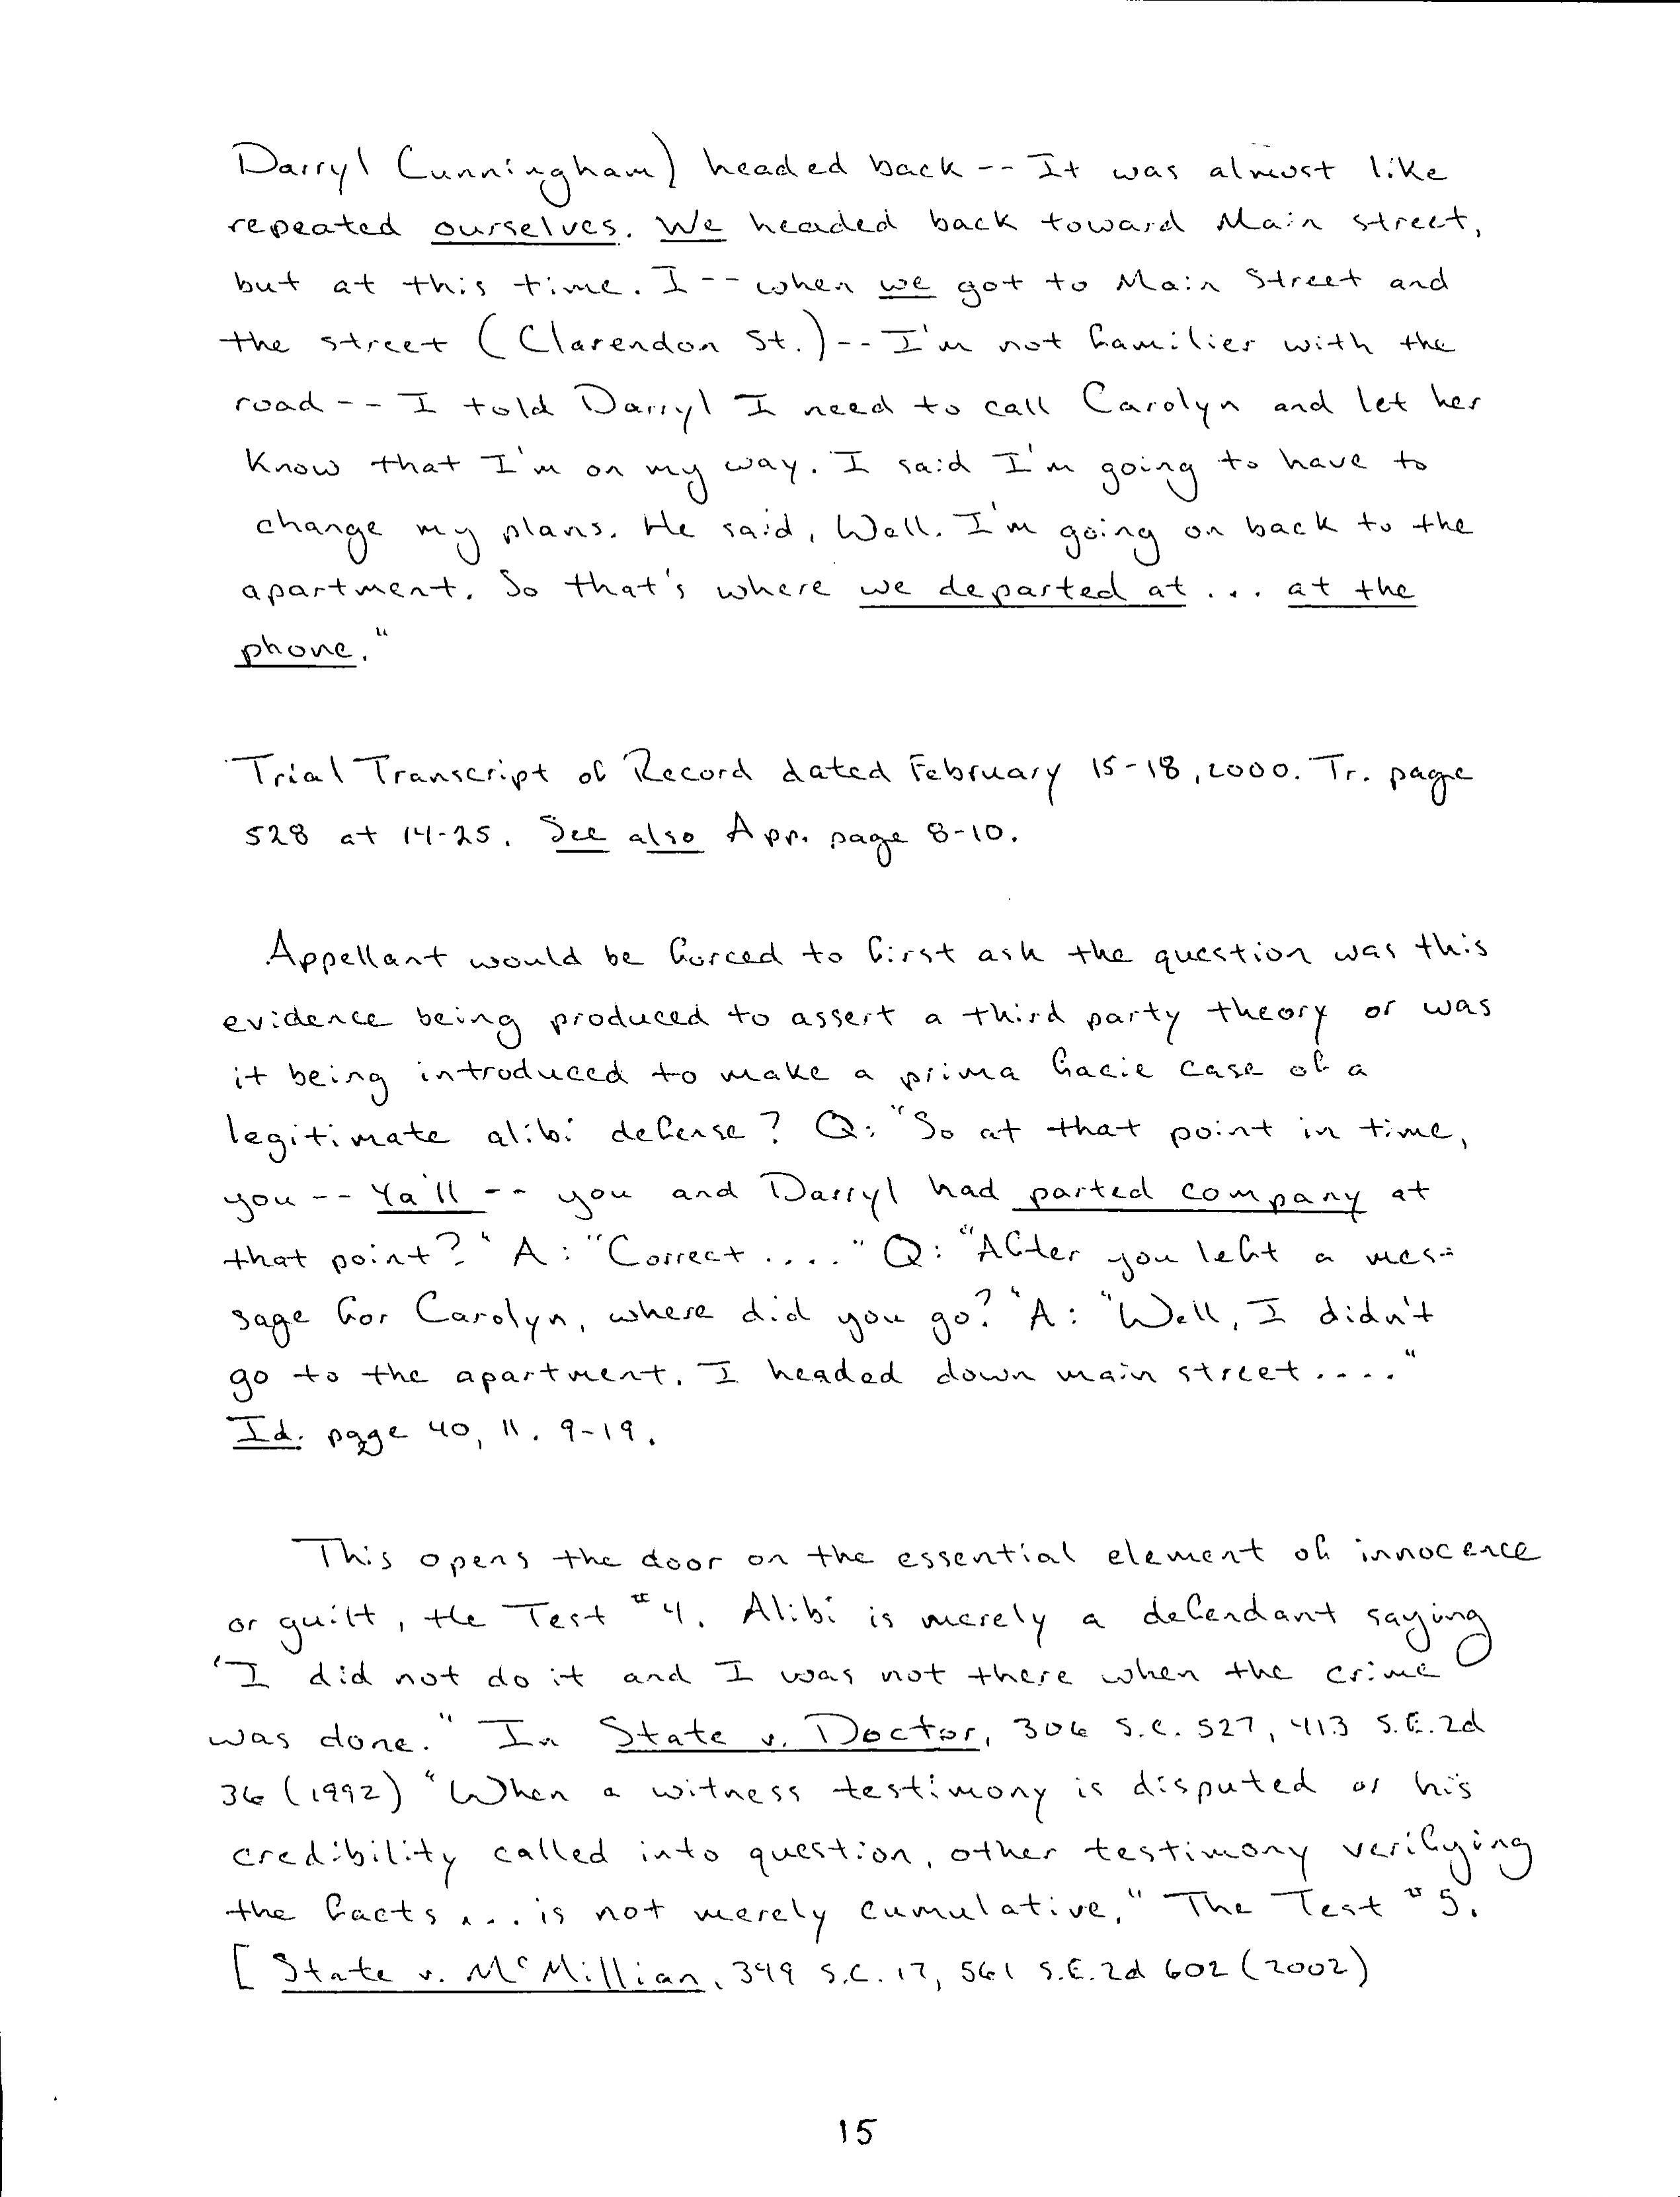 Darryl Cunningham) headed back -- It was almost like
repeated ourselves. We headed back toward Main street,
but at this time. I -- when we got to Main Street and
the street (Clarendon St.) -- I'm not familier with the
road -- I told Darryl I need to call Carolyn and let her
know that I'm on my way. I said I'm going to have to
change my plans. He said, Well. I'm going on back to the
apartment. So that's where we departed at ... at the
phone."
Trial Transcript of Record dated February 15-18, 2000. Tr. page
528 at 14-25. See also App. page 8-10.
Appellant would be forced to first ask the question was this
evidence being produced to assert a third party theory or was
it being introduced to make a prima facie case of a
legitimate alibi defense? Q: "So at that point in time,
you -- Ya'll -- you and Darryl had parted company at
that point?" A: "Correct ...." Q: "After you left a mes-
sage for Carolyn, where did you go?" A: "Well, I didn't
go to the apartment. I headed down main street...."
Id. page 40, ll. 9-19.
This opens the door on the essential element of innocence
or guilt, the Test #4. Alibi is merely a defendant saying
"I did not do it and I was not there when the crime
was done." In State v. Doctor, 306 S.C. 527, 413 S.E.2d
36 (1992) "When a witness testimony is disputed or his
credibility called into question, other testimony verifying
the facts ... is not merely cumulative." The Test #5.
[State v. McMillian, 349 S.C. 17, 561 S.E.2d 602 (2002)
15